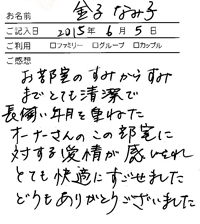 お名前 金子 なみ子
ご記入日 2015年6月5日
ご利用 □ファミリー □グループ □カップル
ご感想
お部屋のすみからすみ
までとても清潔で
長い年月を重ねた
オーナーさんのこの部屋に
対する愛情が感じられ
とても快適にすごせました
どうもありがとうございました